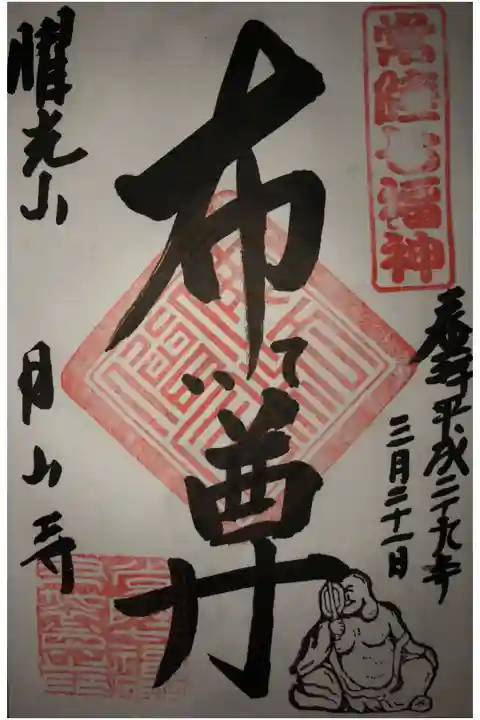 常陸七福神
奉拝平成二十九年
三月三十一日
布てい尊
曜光山 月山寺